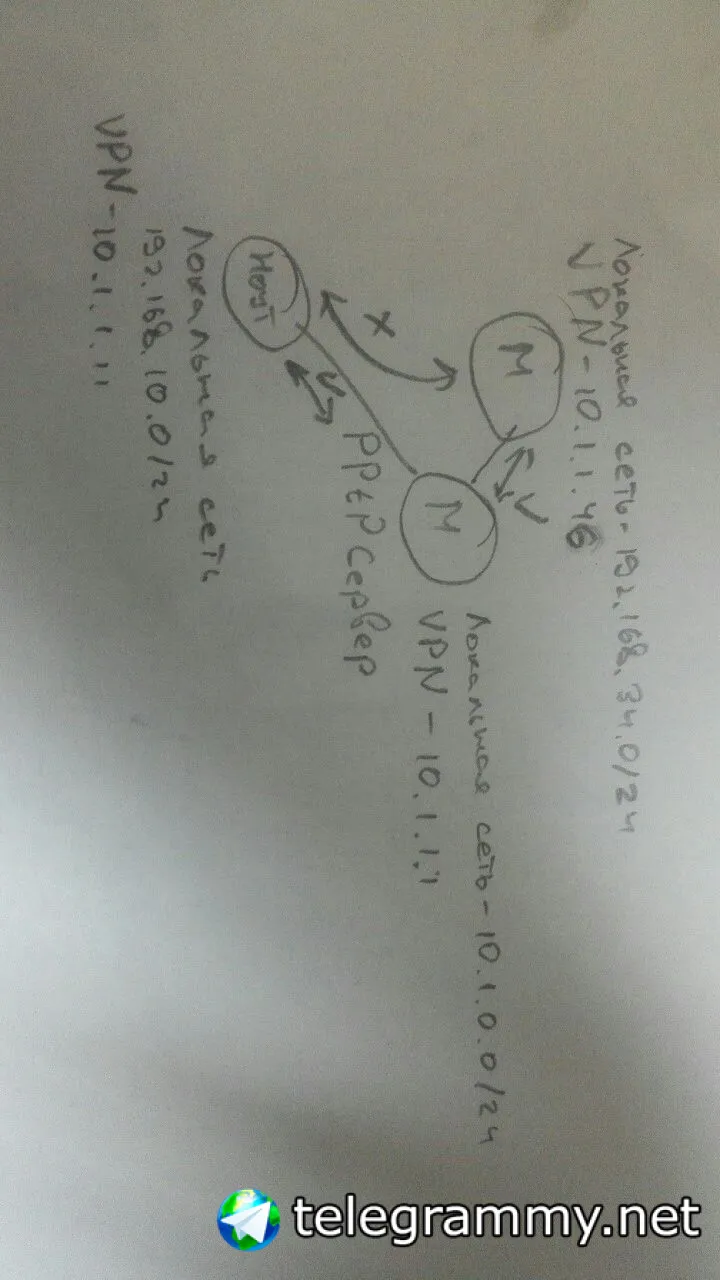 Локальная сеть - 192.168.34.0/24
VPN - 10.1.1.46
M
V
Локальная сеть - 10.1.0.0/24
M
VPN - 10.1.1.1
X
PPtP Сервер
V
Host
Локальная сеть
192.168.10.0/24
VPN - 10.1.1.11
telegrammy.net